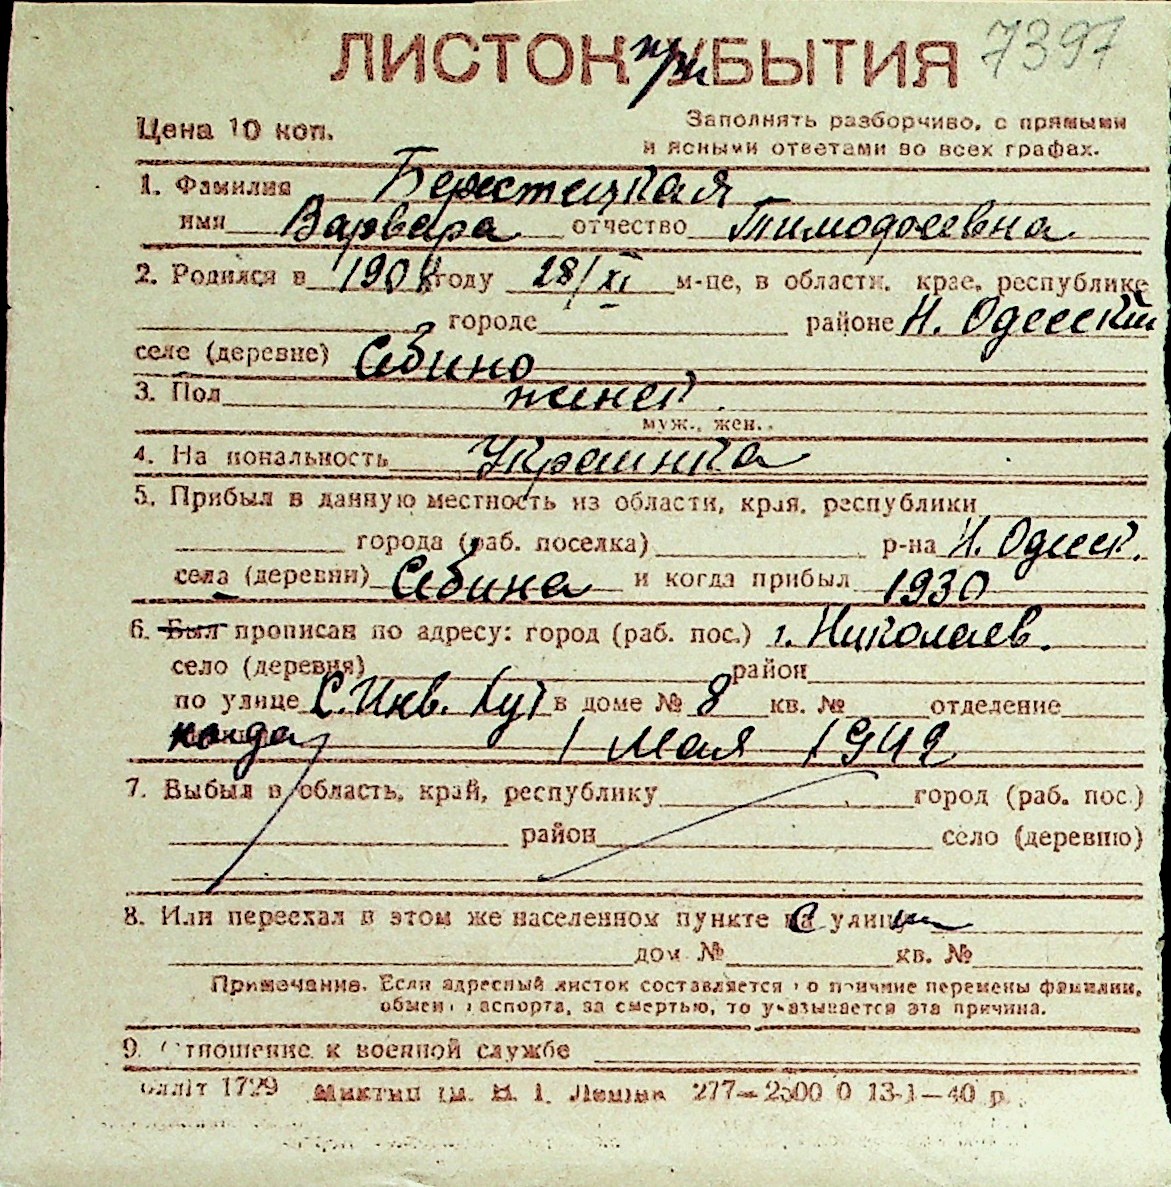 ЛИСТОК при УБЫТИЯ 7397
Цена 10 коп.
Заполнять разборчиво, с прямыми
и ясными ответами во всех графах.
1. Фамилия Берестецкая
имя Варвара отчество Тимофоеевна
2. Родился в 1908 году 28/XI м-це, в области, крае, республике
городе районе Н. Одесский
селе (деревне) Себино
3. Пол женск.
муж., жен.
4. На иональность Украинка
5. Прибыл в данную местность из области, края, республики
города (раб. поселка) р-на Н. Одесск.
села (деревни) Себина и когда прибыл 1930
6. Был прописан по адресу: город (раб. пос.) г. Николаев.
село (деревня) район
по улице С. Инв. в доме № 8 кв. № отделение
когда 1 Мая 1942
7. Выбыл в область, край, республику город (раб. пос.)
район село (деревню)
8. Или переехал в этом же населенном пункте с улицы
дом № кв. №
Примечание. Если адресный листок составляется по причине перемены фамилии,
обмен паспорта, за смертью, то указывается эта причина.
9. Отношение к военной службе
1729 277—2500 0 13-1—40 р.